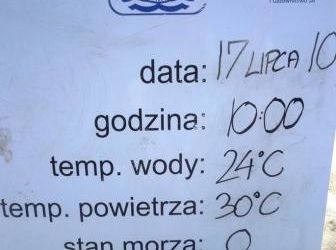 data: 17 LIPCA 10
godzina: 10:00
temp. wody: 24°C
temp. powietrza: 30°C
stan morza: 0